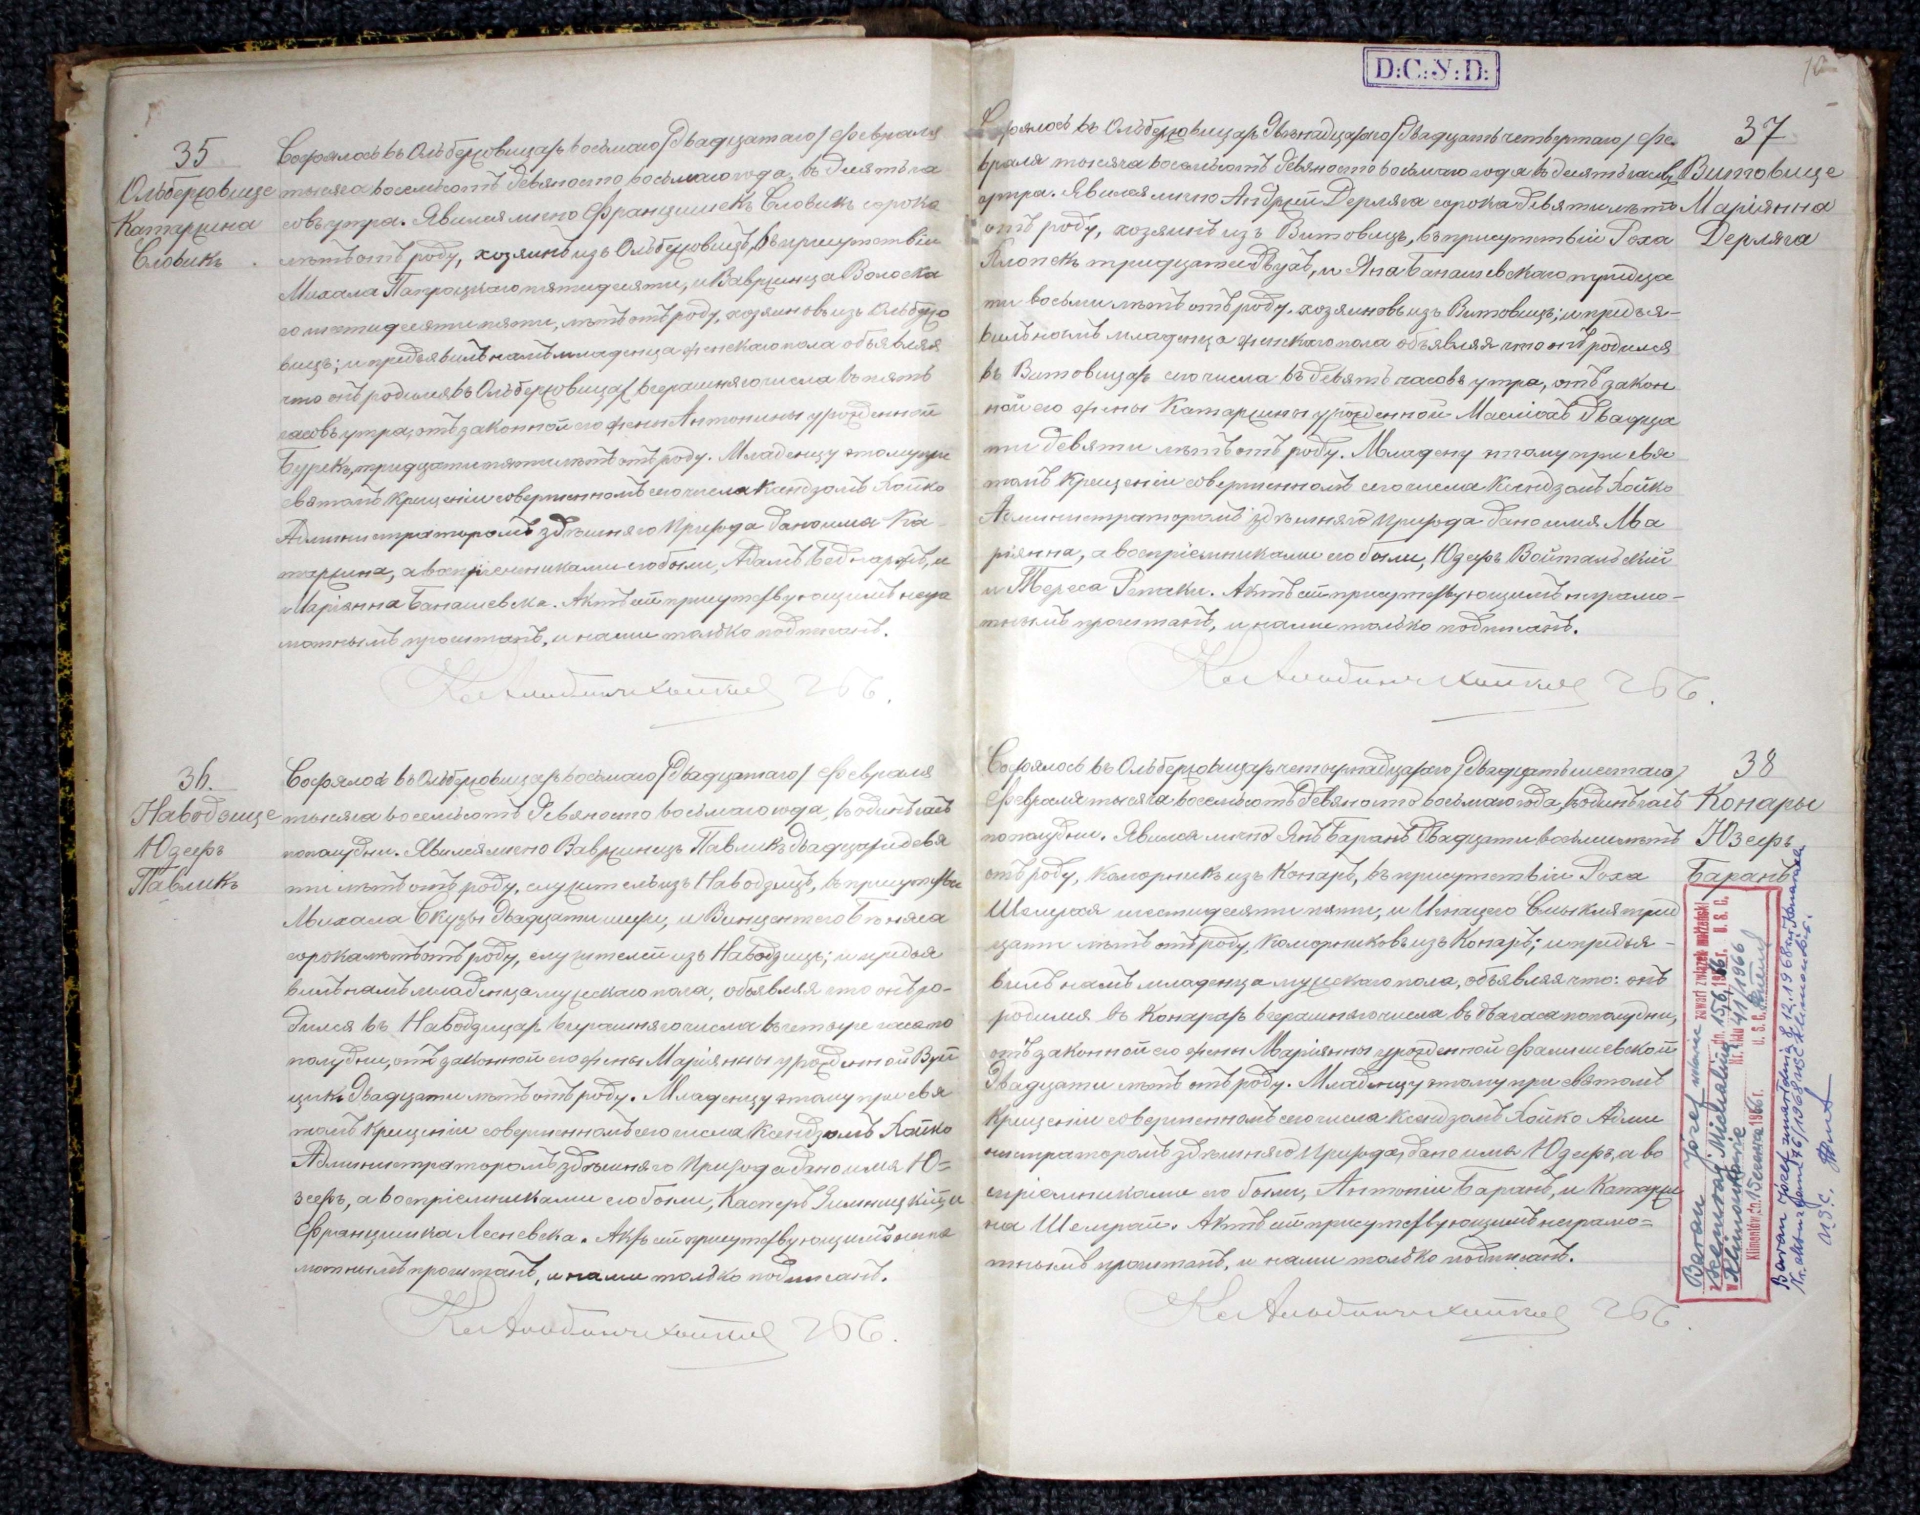 35
Ольбержовице
Катаржина
Словикъ
Состоялось въ Ольбержовицахъ восьмаго /двадцатаго/ Февраля
тысяча восемьсотъ девяносто восьмаго года, въ десять ча
совъ утра. Явился лично Францишекъ Словикъ сорока
лѣтъ отъ роду, хозяинъ изъ Ольбержовицъ, въ присутствіи
Михала Папроцкаго пятидесяти, и Вавржинца Волоска
го шестидесяти пяти, лѣтъ отъ роду, хозяиновъ изъ Ольбержо
вицъ; и предъявилъ намъ младенца женскаго пола объявляя
что онъ родился въ Ольбержовицах вчерашняго числа въ пять
часовъ утра, отъ законной его жены Антонины урожденной
Бурекъ, тридцати пяти лѣтъ отъ роду. Младенцу этому при
святомъ крещеніи совершенномъ сего числа Ксендзомъ Хойко
Администраторомъ здѣшняго прихода дано имя Ка
таржина, а воспріемниками его были, Адамъ Беднаржъ, и
Маріянна Банашевска. Актъ сей присутствующимъ негра
мотнымъ прочитанъ, и нами только подписанъ.
36.
Наводзице
Юзефъ
Павликъ
Состоялось въ Ольбержовицахъ восьмаго /двадцатаго/ Февраля
тысяча восемьсотъ девяносто восьмаго года, въ одинъ часъ
пополудни. Явился лично Вавржинецъ Павликъ двадцати девя
ти лѣтъ отъ роду, служитель изъ Наводзицъ, въ присутствіи
Михала Скузы двадцати шести, и Винцентего Бѣняса
сорока лѣтъ отъ роду, служителей изъ Наводзицъ; и предъя
вилъ намъ младенца мужескаго пола, объявляя что онъ ро-
дился въ Наводзицахъ вчерашняго числа въ четыре часа по
полудни, отъ законной его жены Маріянны урожденной Вуй
цикъ двадцати лѣтъ отъ роду. Младенцу этому при свя
томъ крещеніи совершенномъ сего числа Ксендзомъ Хойко
Администраторомъ здѣшняго прихода дано имя Ю=
зефъ, а воспріемниками его были, Касперъ Зимницкій, и
Францишка Лесневска. Актъ сей присутствующимъ негра
мотнымъ прочитанъ, и нами только подписанъ.
D:C:У:D:
37
Витовице
Маріянна
Дерляга
Состоялось въ Ольбержовицахъ двѣнадцатаго /двадцать четвертаго/ Фе-
враля тысяча восемьсотъ девяносто восьмаго года въ десять часовъ
утра. Явился лично Андржей Дерляга сорока девяти лѣтъ
отъ роду, хозяинъ изъ Витовицъ, въ присутствіи Роха
Клопекъ тридцати двухъ, и Яна Банашевскаго тридца
ти восьми лѣтъ отъ роду. хозяиновъ изъ Витовицъ; и предъя-
вилъ намъ младенца женскаго пола объявляя что онъ родился
въ Витовицахъ сего числа въ девять часовъ утра, отъ закон
ной его жены Катаржины урожденной Масліохъ двадца
ти девяти лѣтъ отъ роду. Младенцу этому при свя
томъ крещеніи совершенномъ сего числа Ксендзомъ Хойко
Администраторомъ здѣшняго прихода дано имя Ма
ріянна, а воспріемниками его были, Юзефъ Войтальскій
и Тереса Репачки. Актъ сей присутствующимъ неграмо-
тнымъ прочитанъ, и нами только подписанъ.
38
Конары
Юзефъ
Баранъ
Состоялось въ Ольбержовицахъ четырнадцатаго /двадцать шестаго/
Февраля тысяча восемьсотъ девяносто восьмаго года, въ одинъ часъ
пополудни. Явился лично Янъ Баранъ двадцати восьми лѣтъ
отъ роду, коморникъ изъ Конаръ, въ присутствіи Роха
шестидесяти пяти, и Игнацего Смыкля трид
цати лѣтъ отъ роду, коморниковъ изъ Конаръ; и предъя-
вилъ намъ младенца мужескаго пола, объявляя что: онъ
родился въ Конарахъ вчерашняго числа въ два часа пополудни,
отъ законной его жены Маріянны урожденной Фалишевской
двадцати лѣтъ отъ роду. Младенцу этому при святомъ
крещеніи совершенномъ сего числа Ксендзомъ Хойко Адми
нистраторомъ здѣшняго прихода, дано имя Юзефъ, а во
спріемниками его были, Антоній Баранъ, и Катаржи
на Шемрай. Актъ сей присутствующимъ неграмо=
тнымъ прочитанъ, и нами только подписанъ.
Baran Józef zawarł związek małżeński
z Szemraj Michaliną dn. 15.6.1966 r. U. S. C.
w Klimontowie Nr. Aktu 41/1966
Klimontów, dn. 15 czerwca 1966 r. U. S. C.
Baran Józef zmarł dnia 9.12.1968 r. w Konarach
Nr. aktu zgonu 76/1968 USC Klimontów.